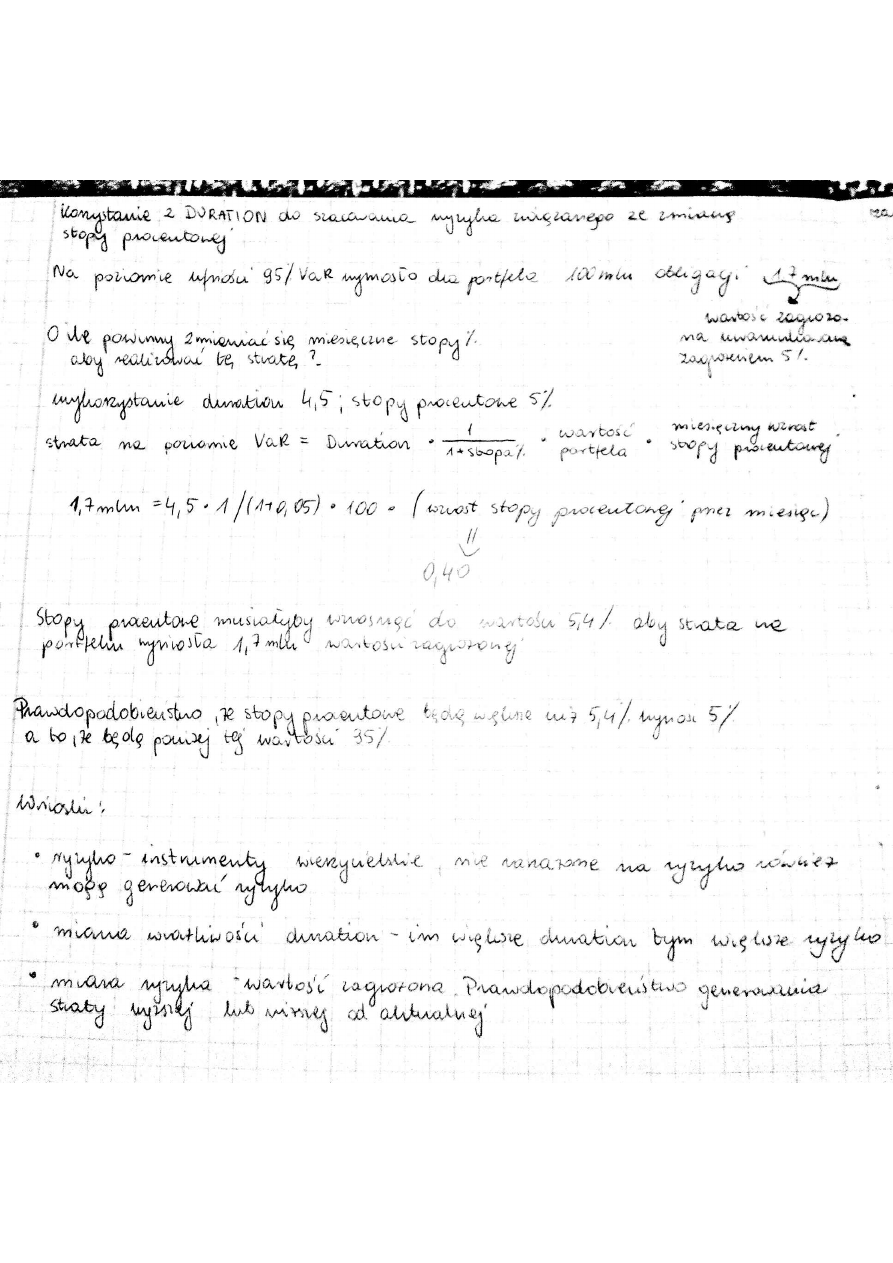 Korzystanie z DURATION do szacowania ryzyka związanego ze zmianą
stopy procentowej
Na poziomie ufności 95% VaR wynosło dla portfela 100 mln obligacji 1,7 mln
wartość zagrożo-
na uwarunkowana
zagrożeniem 5%.
O ile powinny zmieniać się miesięczne stopy %.
aby realizować tę stratę?
wykorzystanie duration 4,5; stopy procentowe 5%
strata na poziomie VaR = Duration • 1/1+stopa% • wartość portfela • miesięczny wzrost stopy procentowej
1,7 mln = 4,5 • 1/(1+0,05) • 100 • (wzrost stopy procentowej przez miesiąc)
||
0,40
Stopy procentowe musiałyby wzrosnąć do wartości 5,4% aby strata na
portfelu wyniosła 1,7 mln wartości zagrożonej
Prawdopodobieństwo, że stopy procentowe będą większe niż 5,4% wynosi 5%
a to, że będą poniżej tej wartości 95%.
Wnioski:
• ryzyko - instrumenty wierzycielskie, nie narażone na ryzyko również
mogą generować ryzyko
• miara wrażliwości duration - im większe duration tym większe ryzyko
• miara ryzyka - wartość zagrożona. Prawdopodobieństwo generowania
straty wyższej lub niższej od aktualnej